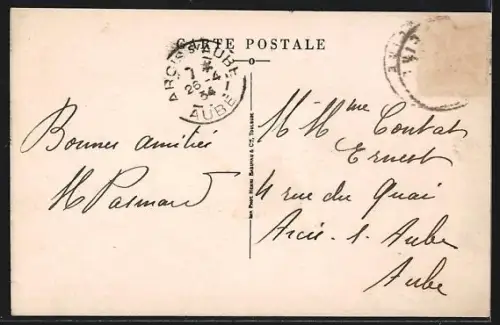 CARTE POSTALE
ARCIS-S-AUBE
26-4
34
AUBE
Bonnes amitiés
M M^me Contat
Ernest
4 rue du Quai
Arcis-s-Aube
Aube